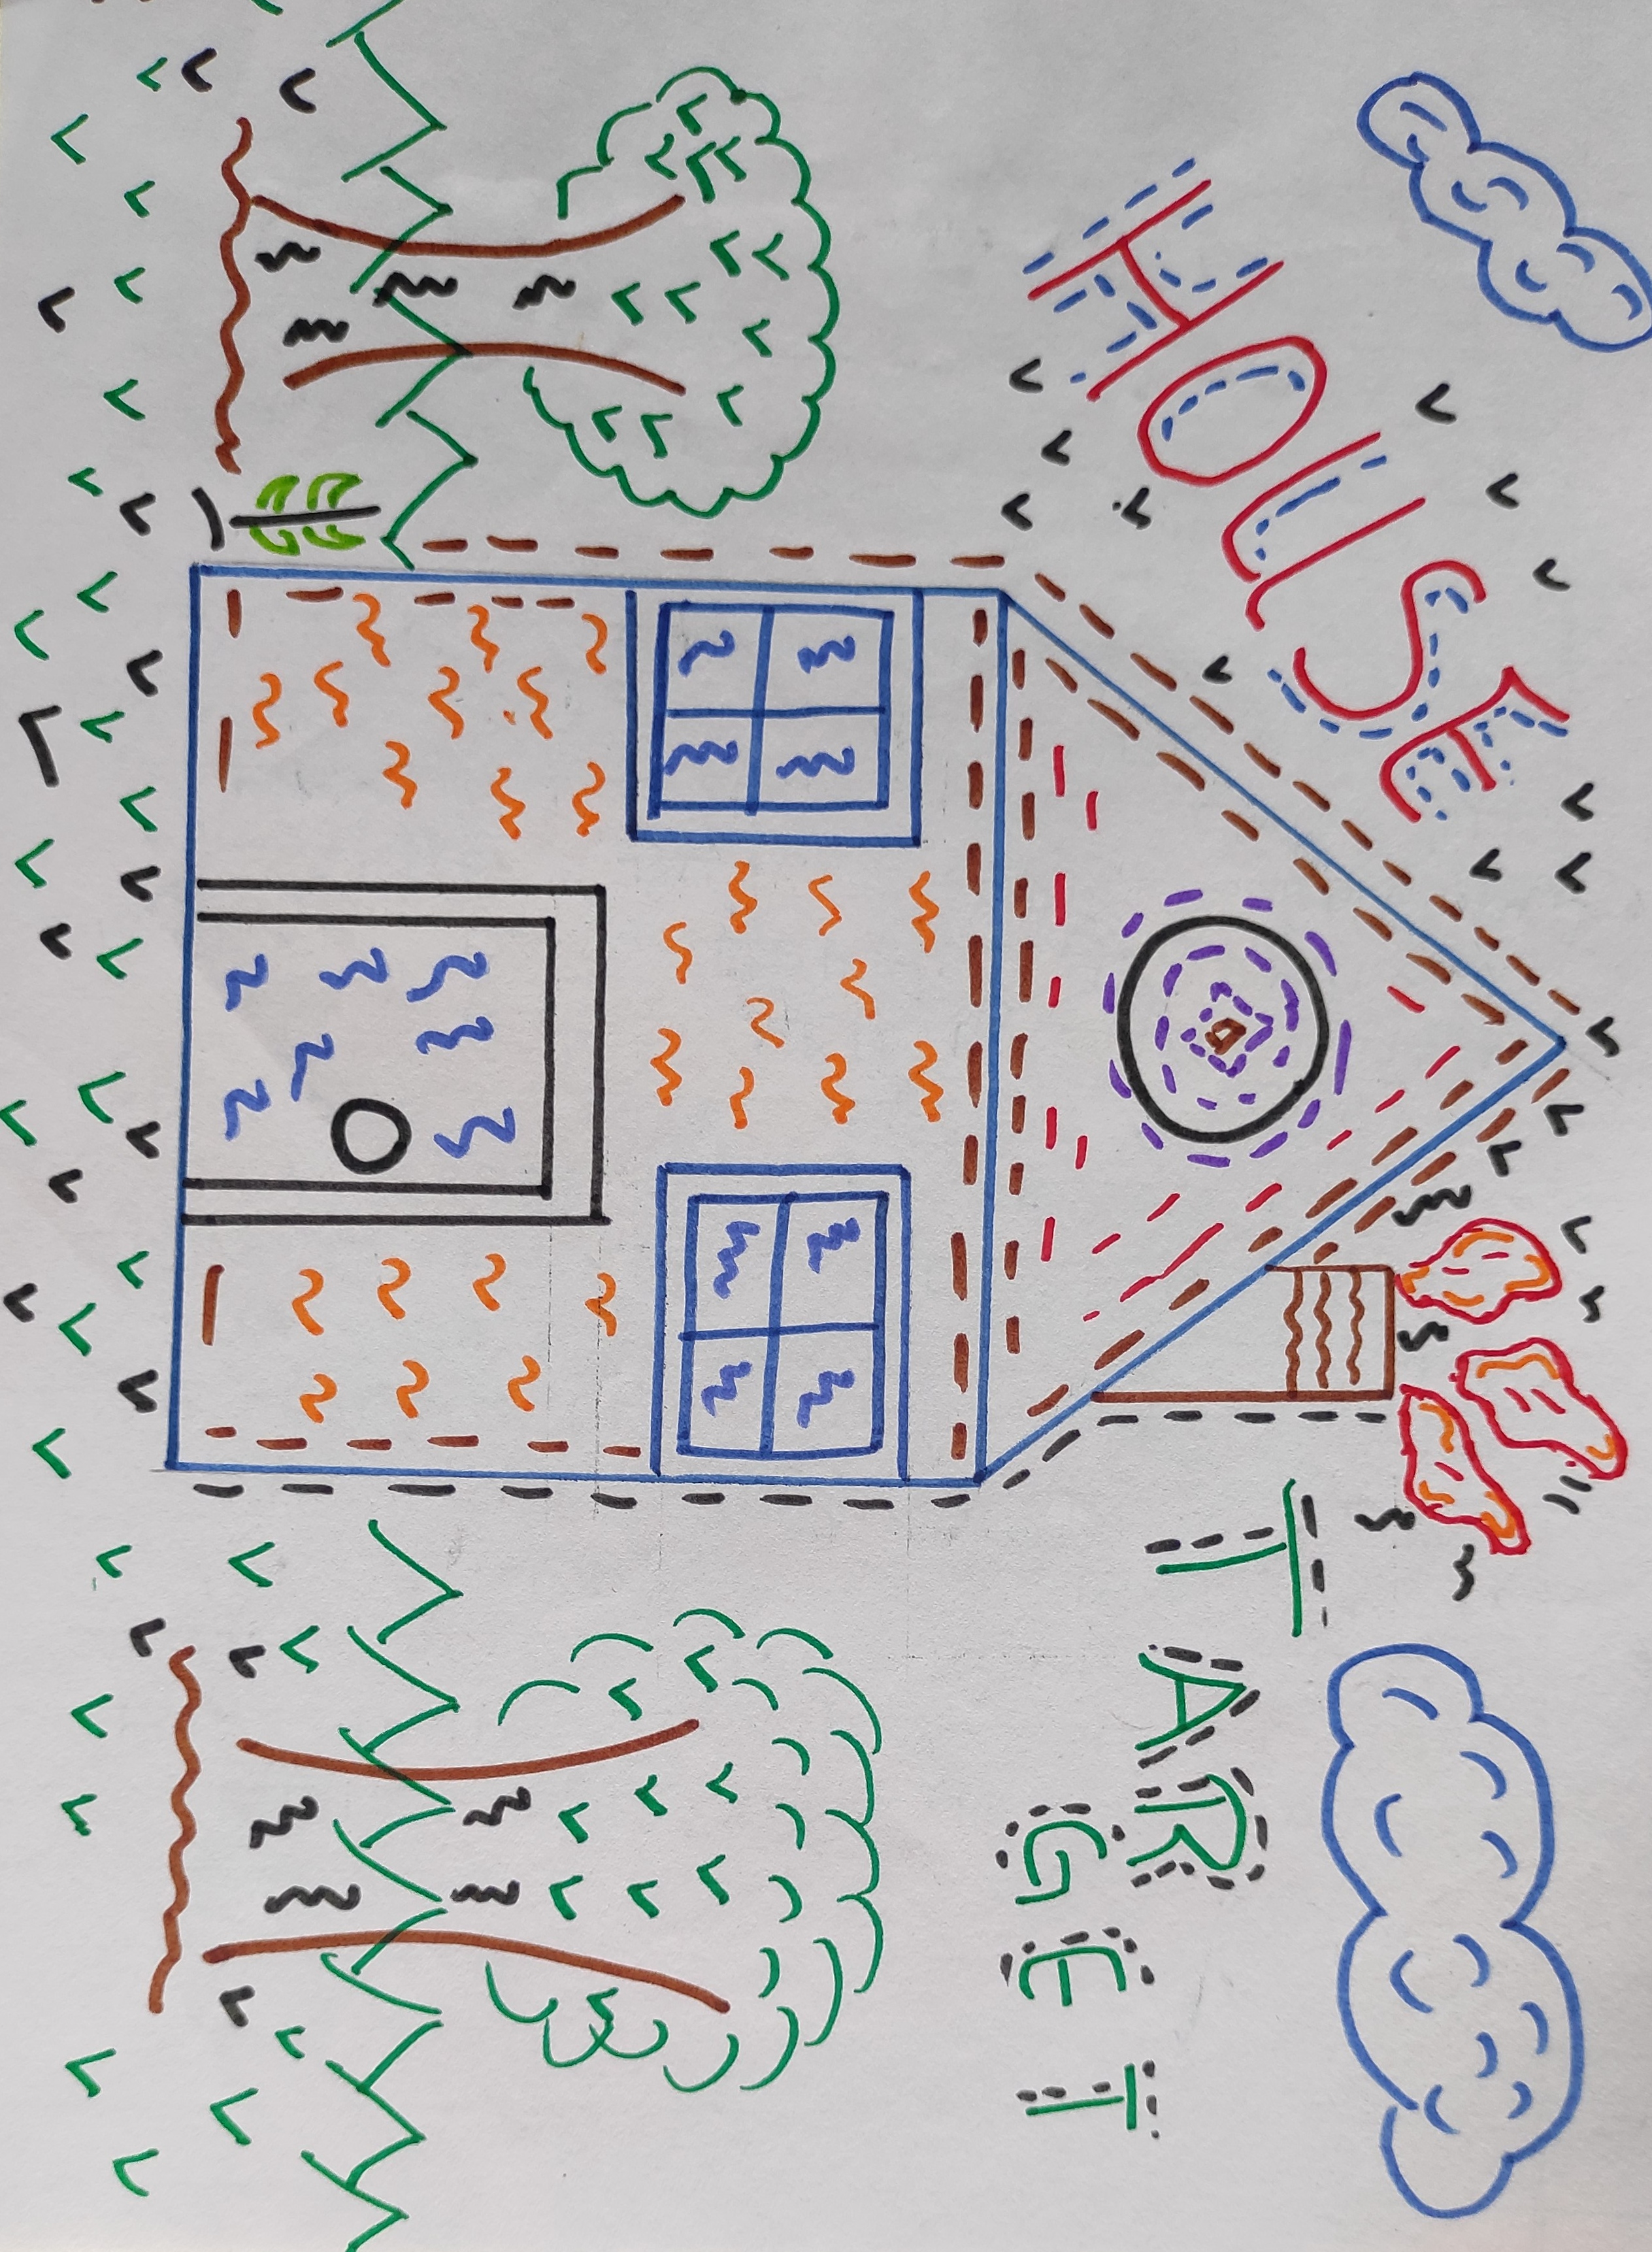 HOUSE
TAR
GET